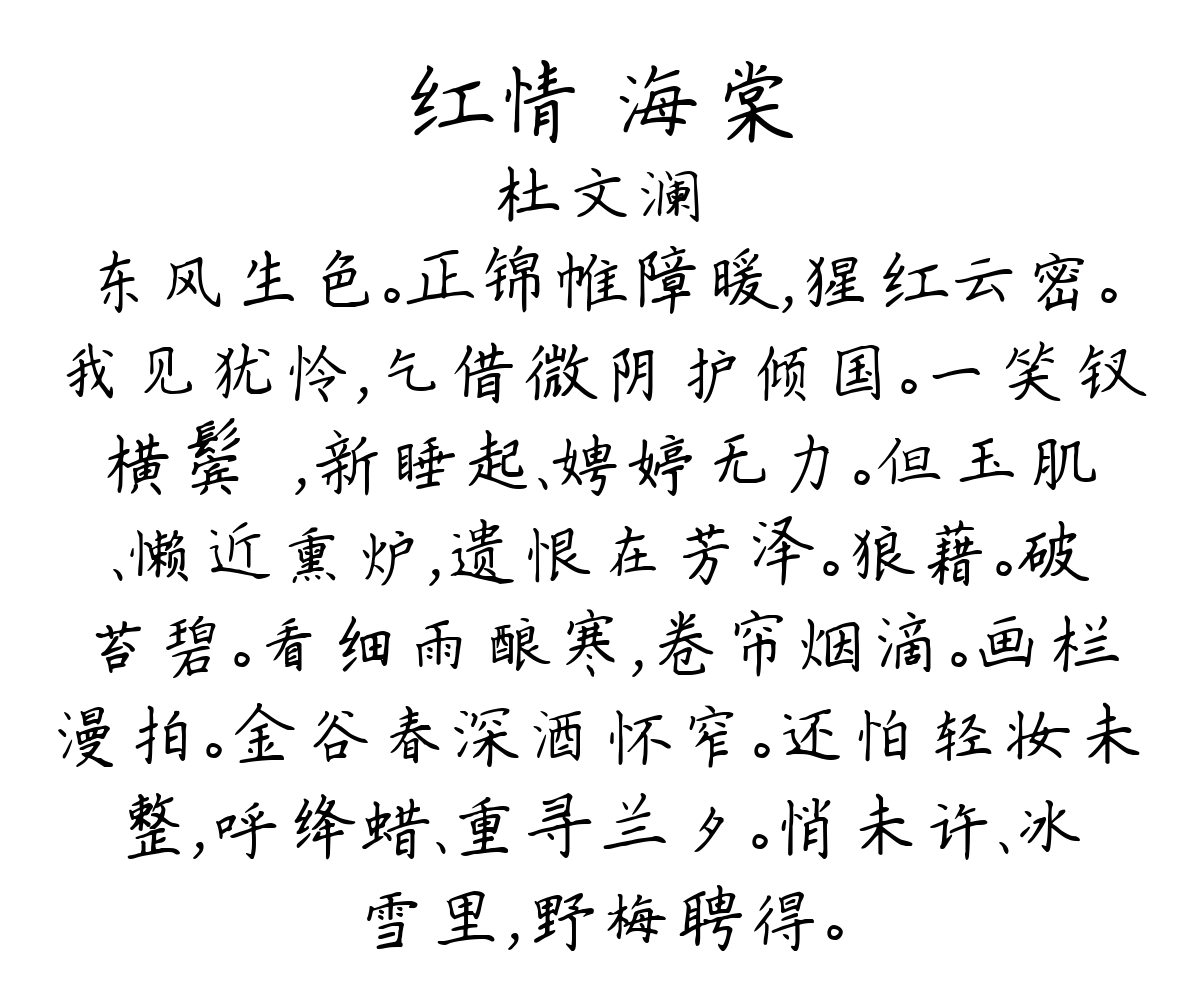 红情 海棠
杜文澜
东风生色。正锦帷障暖,猩红云密。
我见犹怜,乞借微阴护倾国。一笑钗
横鬓 ,新睡起、娉婷无力。但玉肌
、懒近熏炉,遗恨在芳泽。狼藉。破
苔碧。看细雨酿寒,卷帘烟滴。画栏
漫拍。金谷春深酒怀窄。还怕轻妆未
整,呼绛蜡、重寻兰夕。悄未许、冰
雪里,野梅聘得。